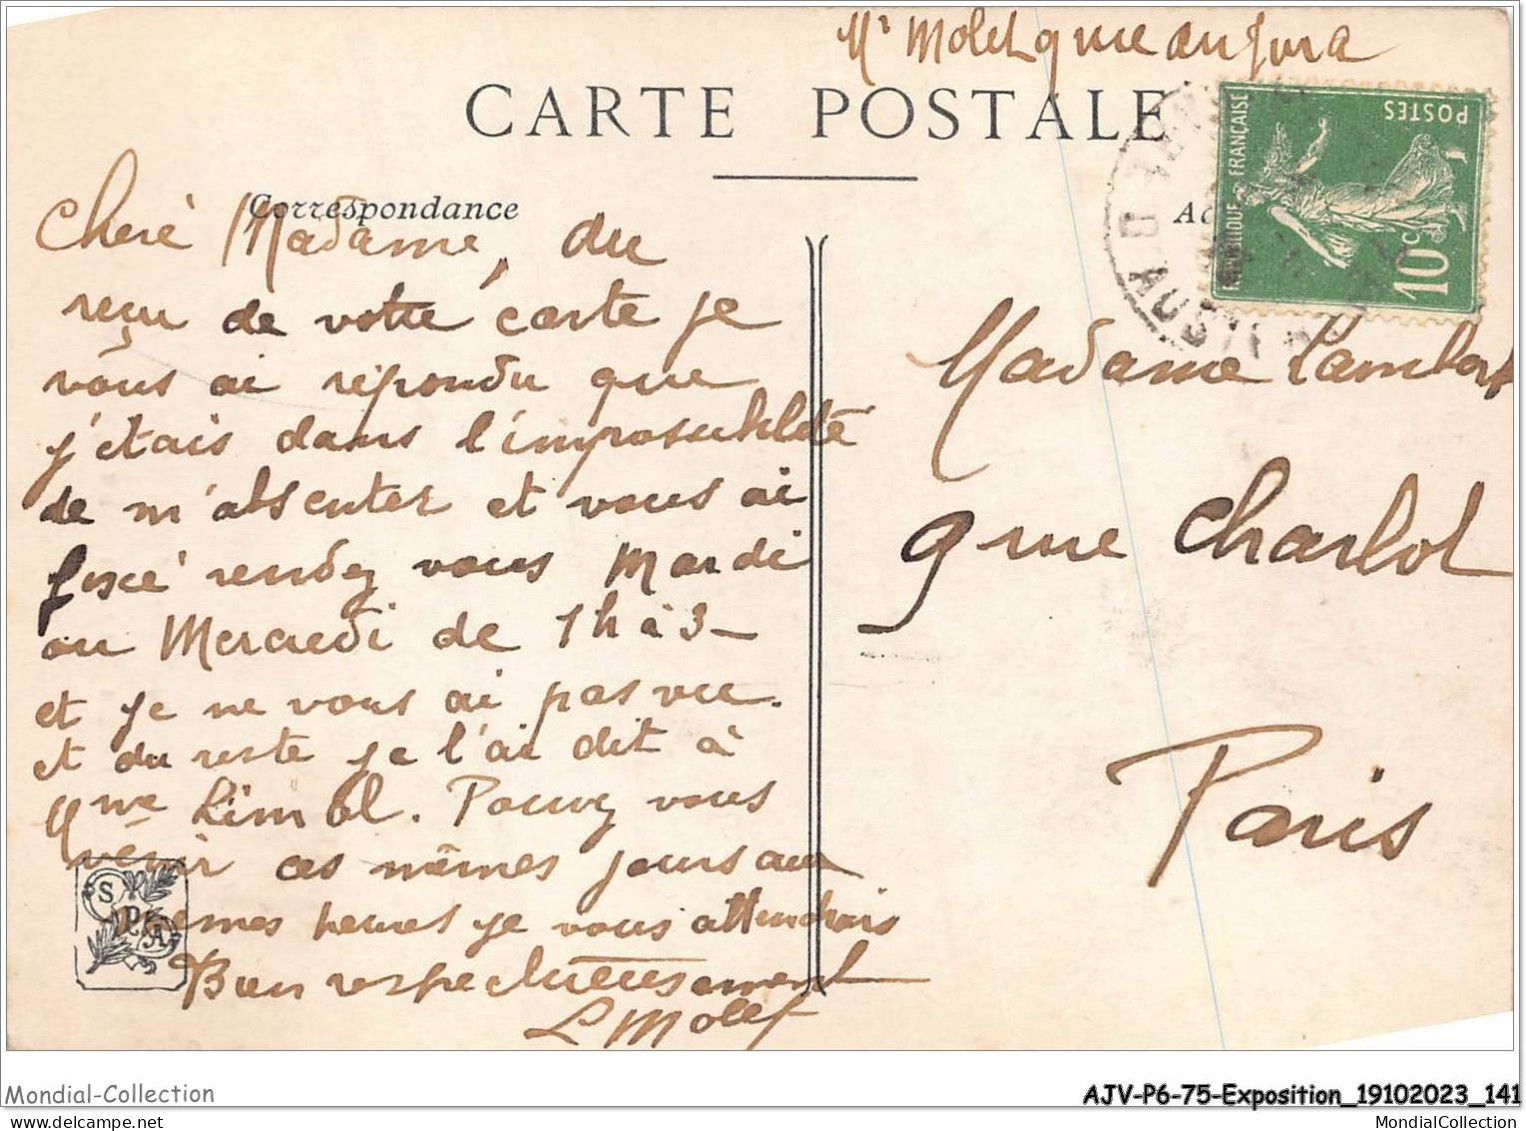 Mr Molet 9 rue du Jura
CARTE POSTALE
Correspondance
RÉPUBLIQUE FRANÇAISE
POSTES
10c
Cheré Madame, du
reçu de votre carte je
vous ai répondu que
j'étais dans l'impossiblité
de m'absenter et vous ai
fixé rendez vous Mardi
ou Mercredi de 1h à 3 -
et je ne vous ai pas vue.
et du reste je l'ai dit à
Mme Limol. Pouvez vous
venir ces mêmes jours aux
mêmes heures je vous attendrais
Bien respectueusement
L Molet
SPA
Madame Lambert
9 rue Charlot
Paris
Mondial-Collection
AJV-P6-75-Exposition_19102023_141
MondialCollection